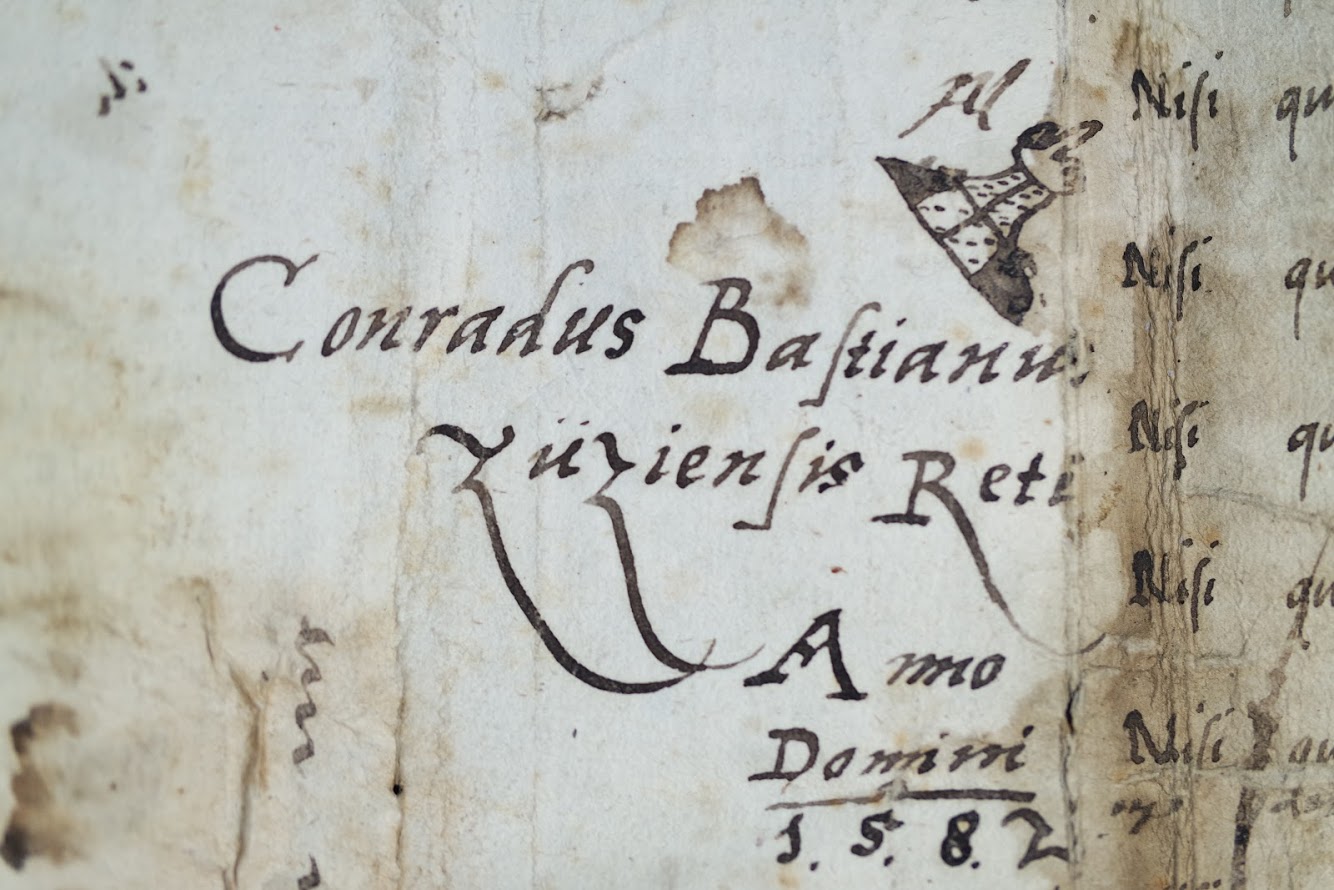 Conradus Baſtianus
Züzienſis Reti
Anno
Domini
1. 5. 8. 2
Niſi qu
Niſi qu
Niſi qu
Niſi qu
Niſi qu